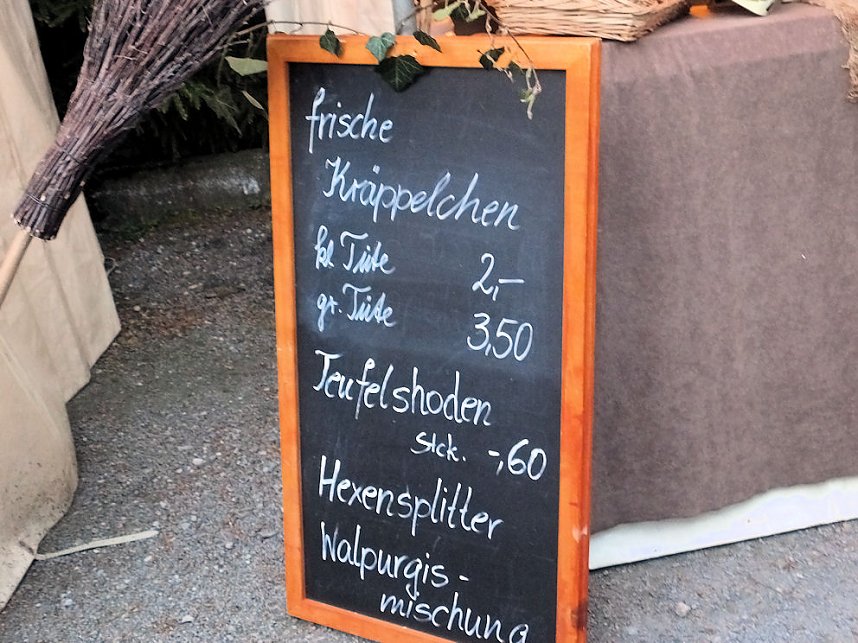 frische
Kräppelchen
kl. Tüte 2,-
gr. Tüte 3,50
Teufelshoden
Stck. -,60
Hexensplitter
Walpurgis-
mischung